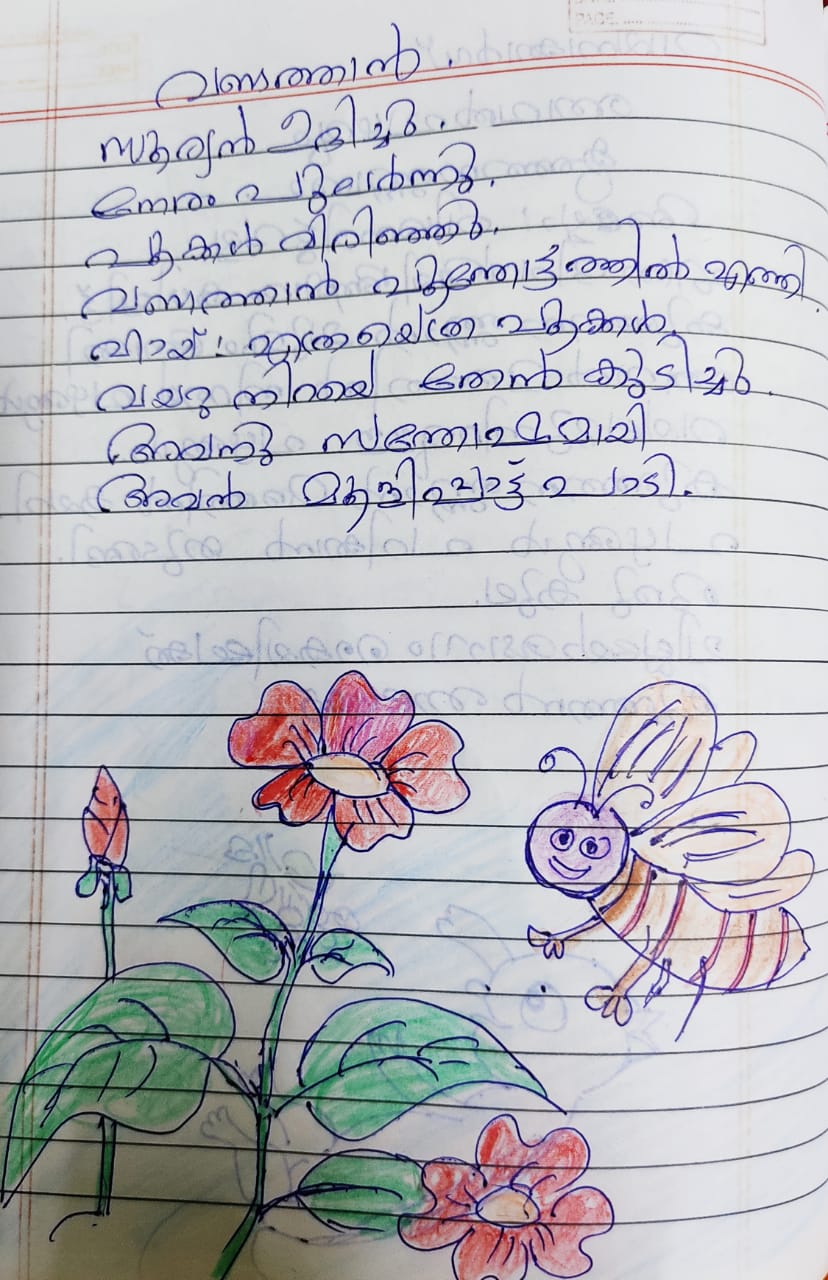 വണ്ടത്താൻ.
സൂര്യൻ ഉദിച്ചു.
നേരം പുലർന്നു.
പൂക്കൾ വിരിഞ്ഞു.
വണ്ടത്താൻ പൂന്തോട്ടത്തിൽ എത്തി.
ഹായ്! എത്രയെത്ര പൂക്കൾ.
വയറു നിറയെ തേൻ കുടിച്ചു.
അവനു സന്തോഷമായി
അവൻ മൂളിപ്പാട്ട് പാടി.